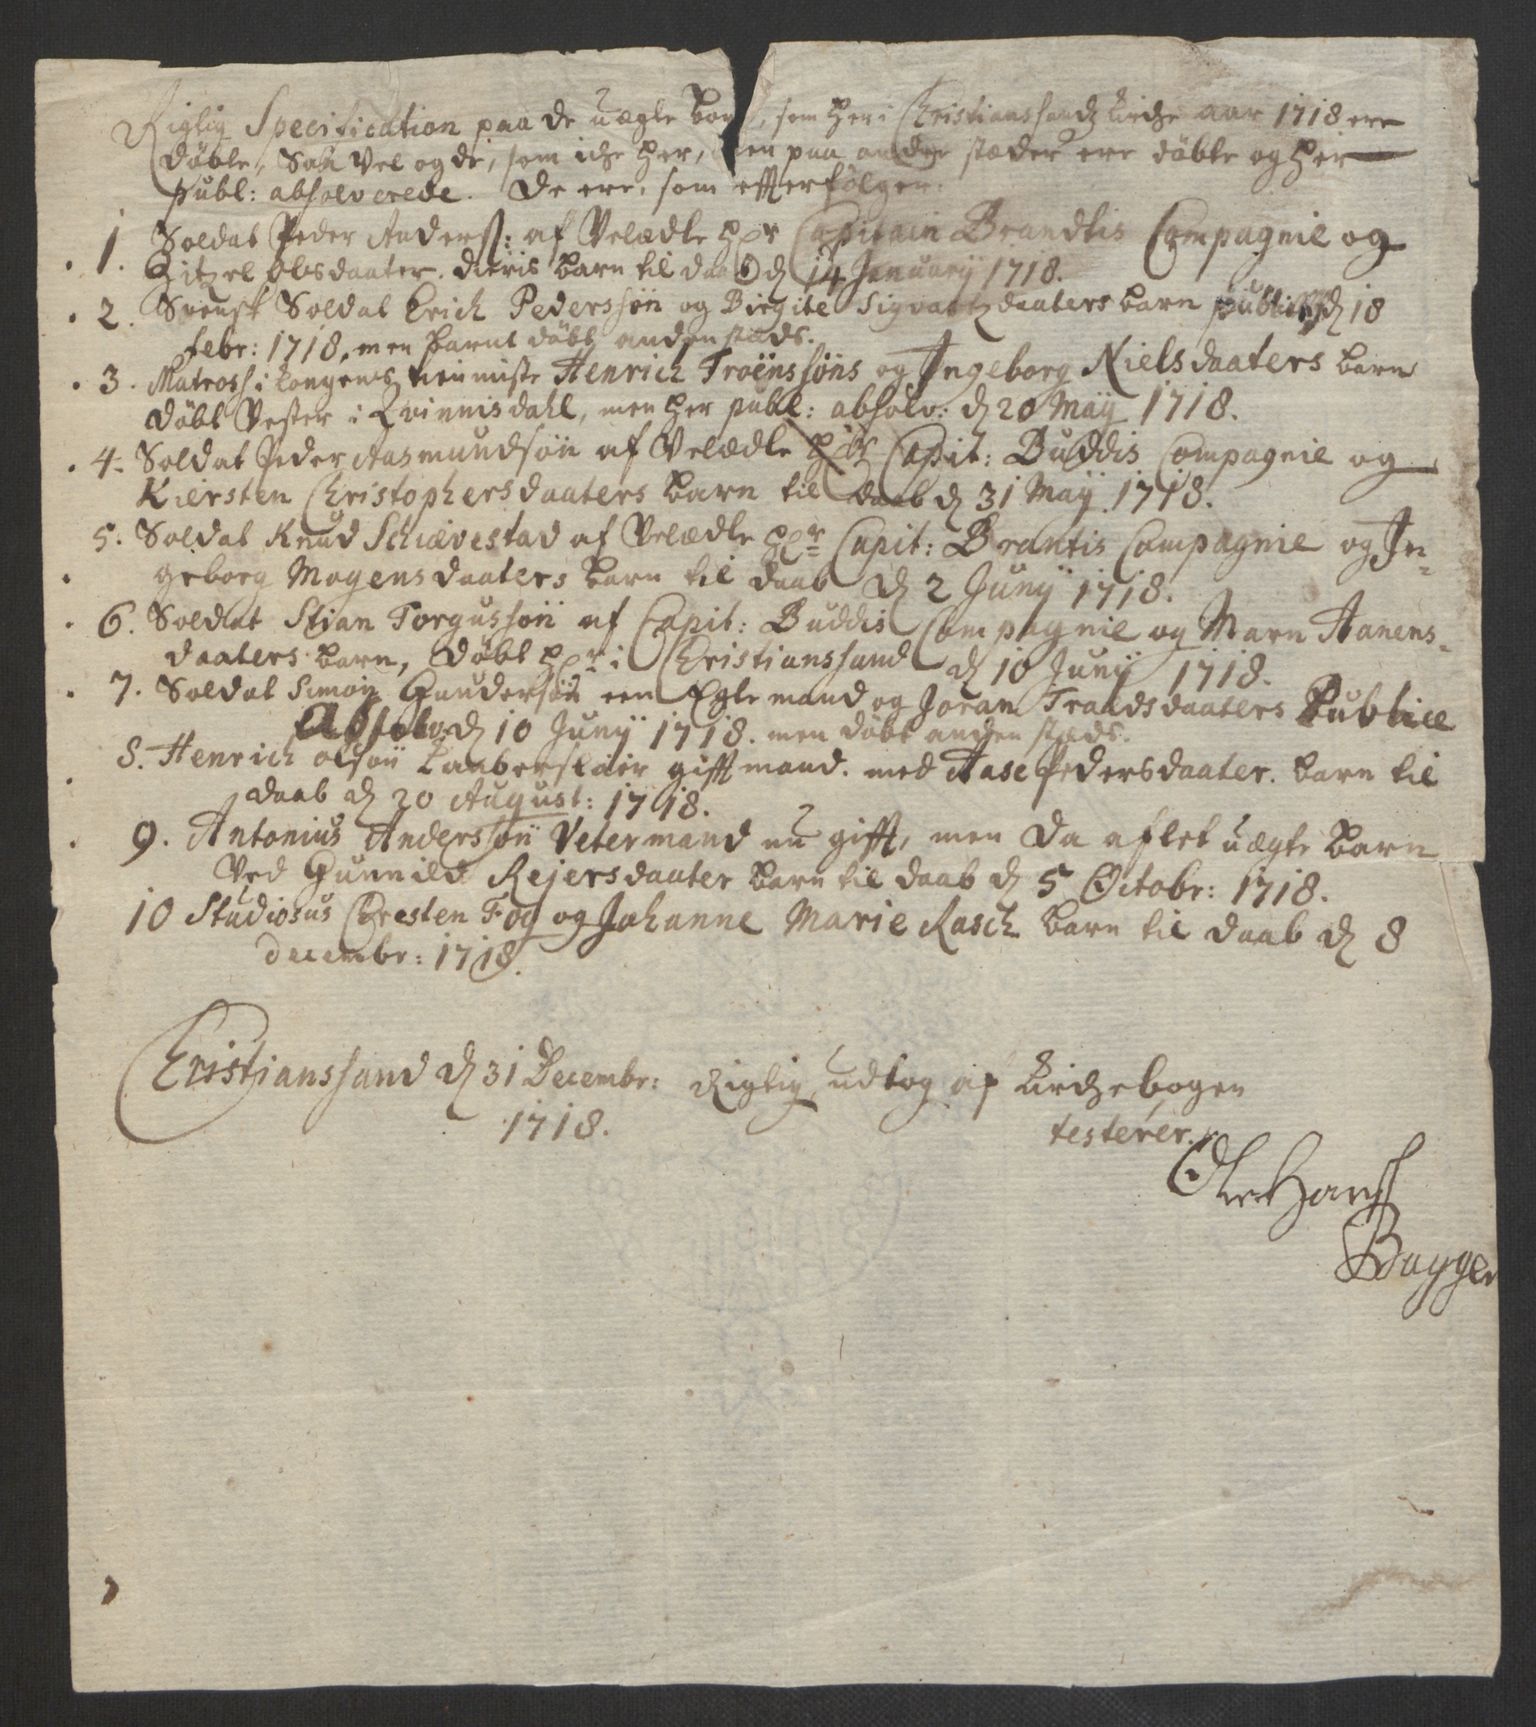 Rigtig Specification paa de uægte børn, som her i Christianssandz Kirche aar 1718 ere
døbte, Saa vel og de, som iche her, men paa andre stæder ere døbte og her
publ: absolverede. De ere, som effterfølger.
1. Soldat Peder Anderss: af Velædle Hr Capitain Brandtis Compagnie og
Zitzel Olsdaater. dieris barn til daab d 14 January 1718.
2. Svensk Soldat Erich Pederssøn og Birgite Sigvartzdaaters barn public d 18
febr: 1718, men barnet døbt anden stæds.
3. Matross i Kongens tienniste Henrich Troënssøns og Ingeborg Nielsdaaters barn
døbt Vester i Qvinnisdahl, men her publ: absolv: d 20 Maÿ 1718.
4. Soldat Peder Aasmundsøn af Velædle Hr Capit: Buddis Compagnie og
Kiersten Christophersdaaters barn til daab d 31 Maÿ 1718.
5. Soldat Knud Schævestad af Velædle Hr Capit: Brantis Compagnie og In=
geborg Mogensdaaters barn til daab d 2 Junÿ 1718.
6. Soldat Stian Torgussøn af Capit: Buddis Compagnie og Marn Aanens=
daaters barn, døbt her i Christianssand d 10 Junÿ 1718.
7. Soldat Simon Gundersøn een Egte mand og Joran Traadsdaaters Publice
Absolv: d 10 Junÿ 1718. men døbt anden stæds.
8. Henrich olsøn Laaberslaier gifft mand. med Aase Pedersdaater. barn til
daab d 20 August: 1718.
9. Antonius Anderssøn Vetermand nu gifft, men da aflet uægte barn
Ved Gunnild Rejersdaater barn til daab d 5 Octobr: 1718.
10 Studiosus Chresten Fog og Johanne Marie Rasch barn til daab d 8
decembr: 1718.
Christianssand d 31 Decembr: Rigtig udtog af Kirchebogen
1718. testerer.
Ole Hanss
Bagger